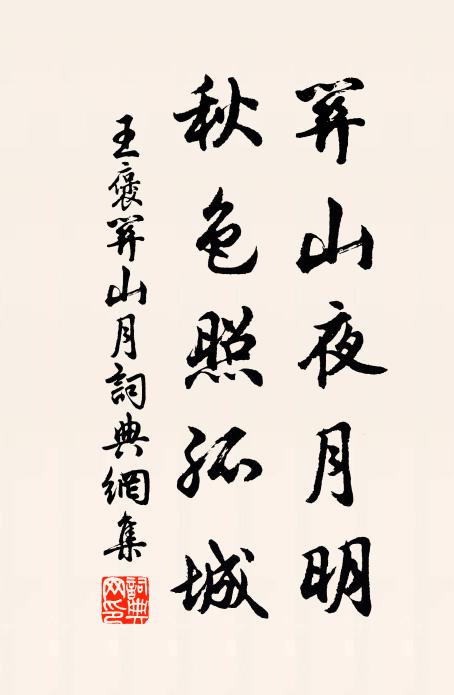 關山夜月明
秋色照孤城
王褒關山月詞典網集
詞典網印